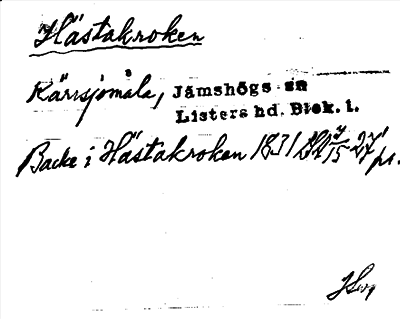 Hästakroken
Kärrsjömåla, Jämshögs sn
Listers hd. Blek. l.
Backe i Hästakroken 1831